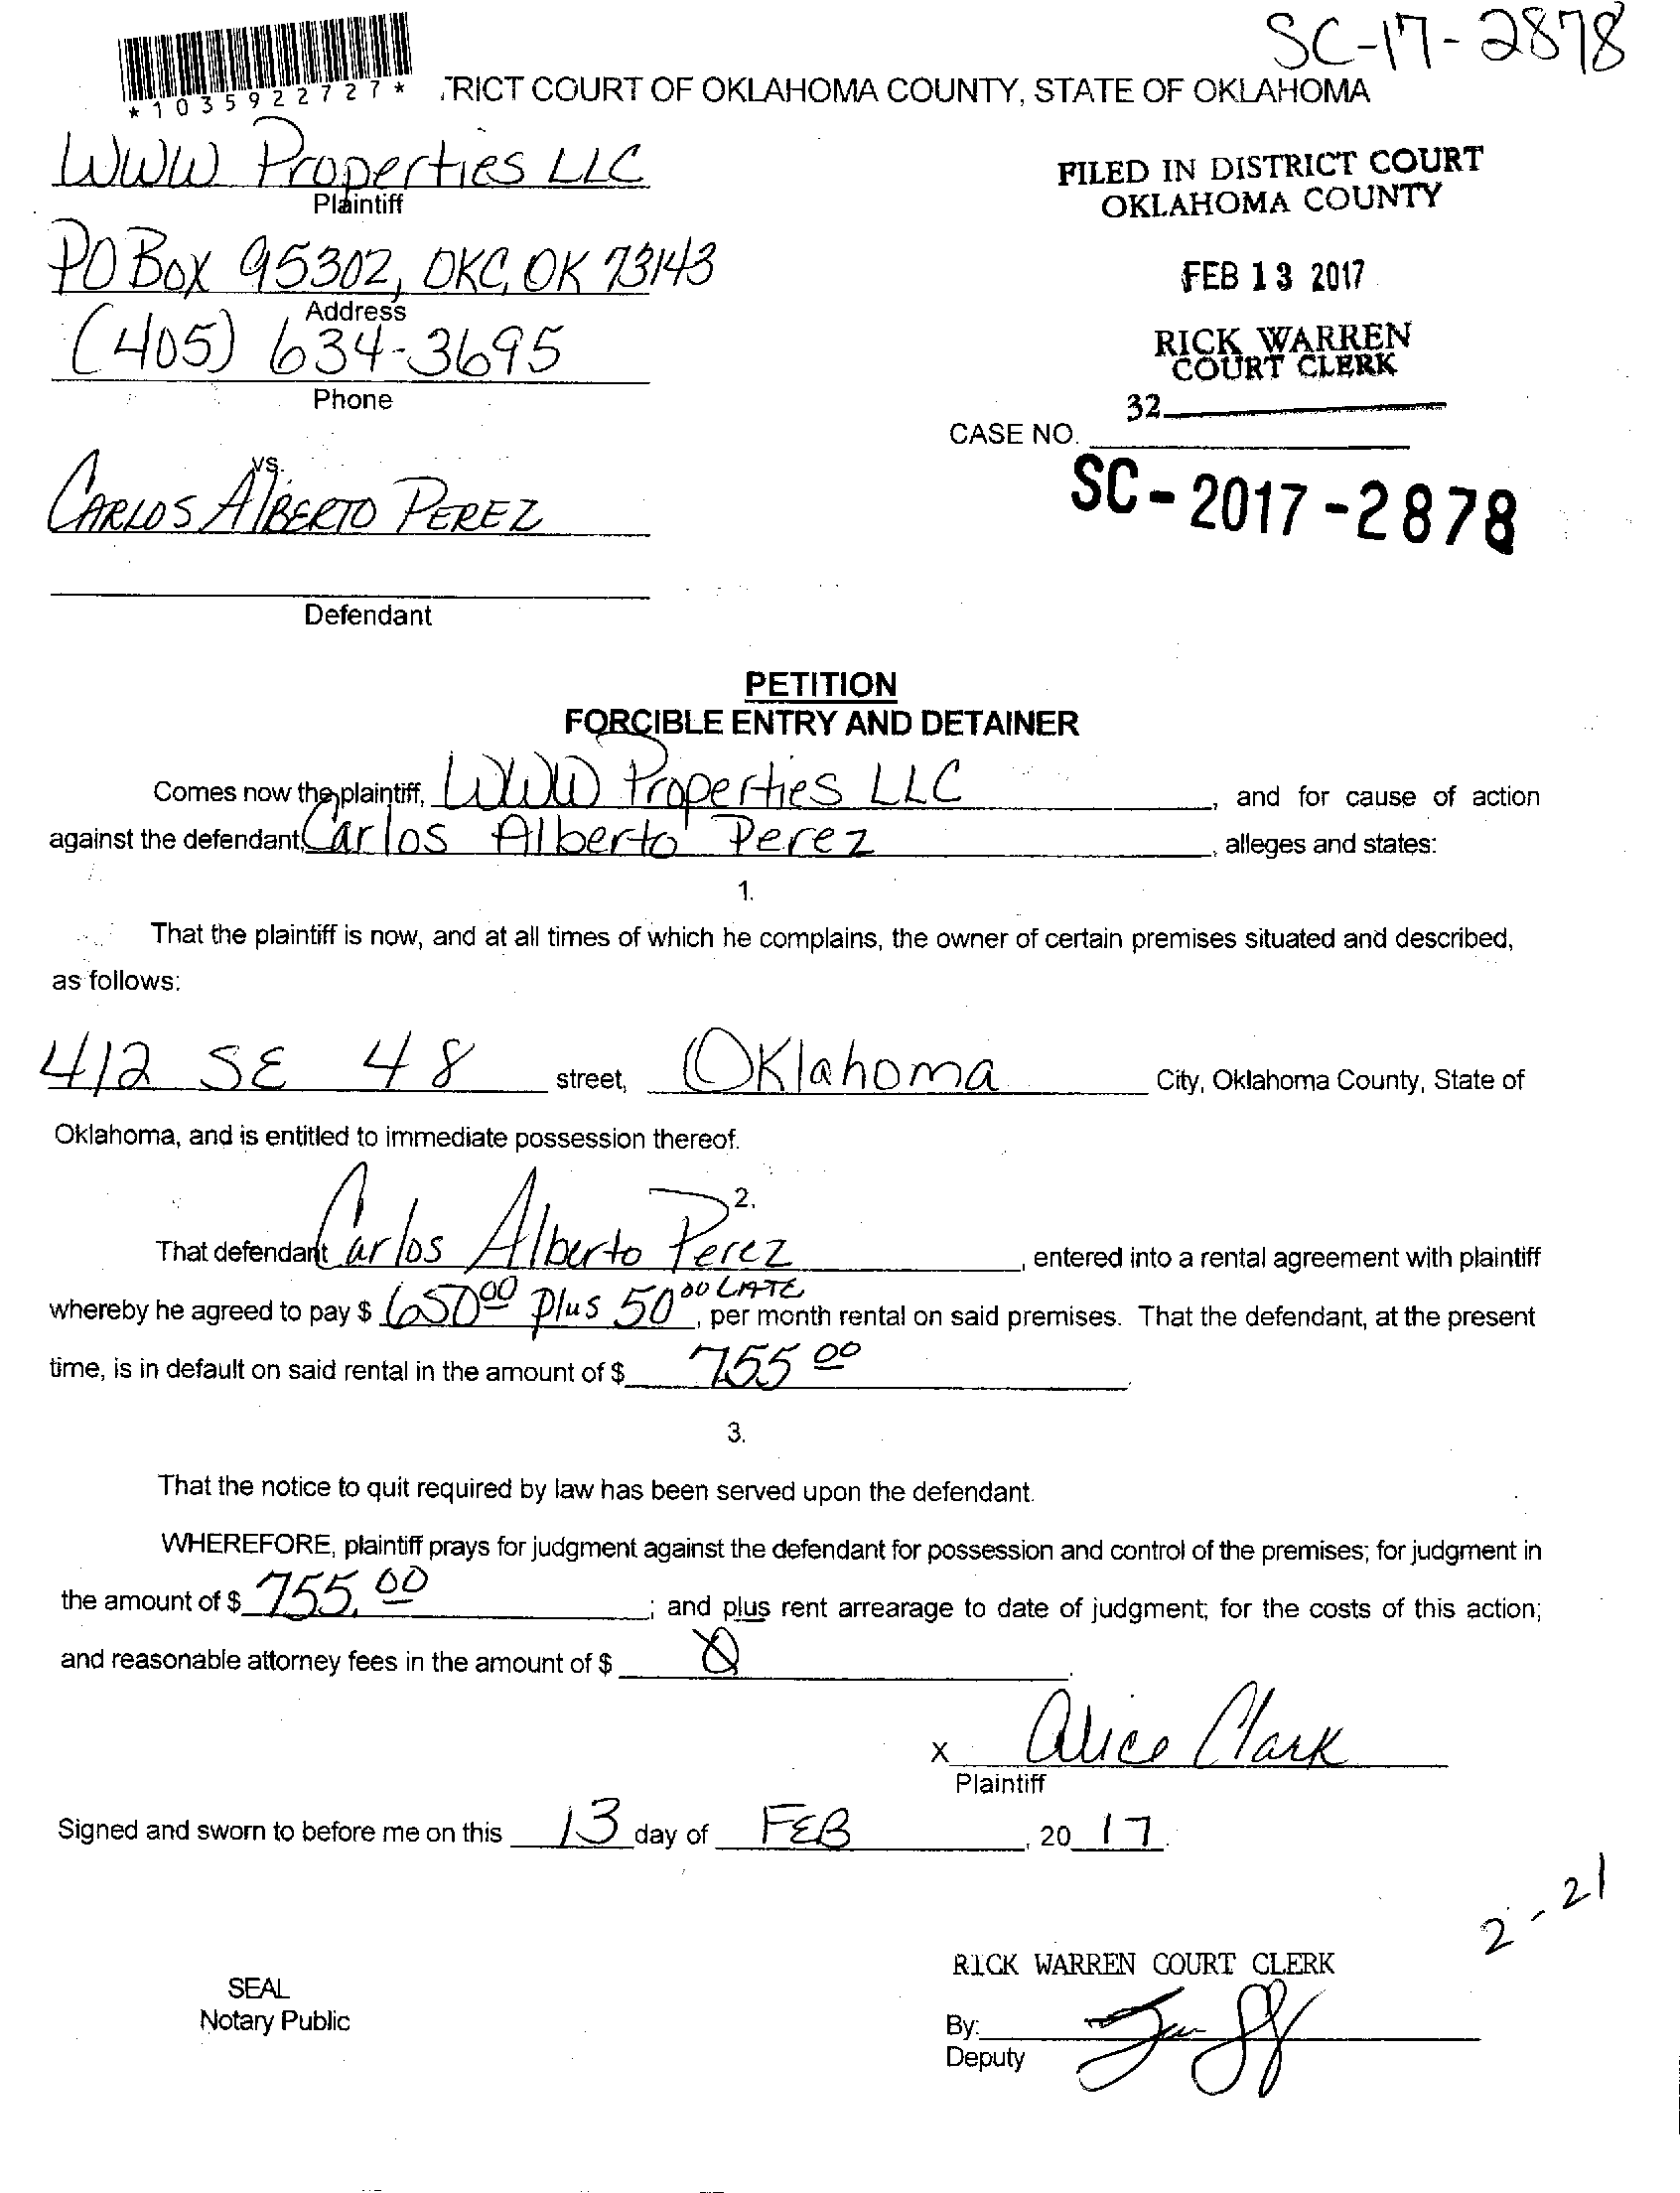 SC-17-2878
*1035922727*
TRICT COURT OF OKLAHOMA COUNTY, STATE OF OKLAHOMA
WWW Properties LLC
Plaintiff
FILED IN DISTRICT COURT
OKLAHOMA COUNTY
PO Box 95302, OKC, OK 73143
Address
FEB 13 2017
(405) 634-3695
Phone
RICK WARREN
COURT CLERK
32
CASE NO.
SC-2017-2878
vs.
CARLOS AlBERTO PEREZ
Defendant
PETITION
FORCIBLE ENTRY AND DETAINER
Comes now the plaintiff, WWW Properties LLC, and for cause of action
against the defendant, Carlos Alberto Perez, alleges and states:
1.
That the plaintiff is now, and at all times of which he complains, the owner of certain premises situated and described,
as follows:
412 SE 48 street, Oklahoma City, Oklahoma County, State of
Oklahoma, and is entitled to immediate possession thereof.
2.
That defendant Carlos Alberto Perez, entered into a rental agreement with plaintiff
whereby he agreed to pay $ 650 00 plus 50 00 LATE, per month rental on said premises. That the defendant, at the present
time, is in default on said rental in the amount of $ 755 00.
3.
That the notice to quit required by law has been served upon the defendant.
WHEREFORE, plaintiff prays for judgment against the defendant for possession and control of the premises; for judgment in
the amount of $ 755.00; and plus rent arrearage to date of judgment; for the costs of this action;
and reasonable attorney fees in the amount of $ 0.
X Alice Clark
Plaintiff
Signed and sworn to before me on this 13 day of FEB, 20 17.
2-21
RICK WARREN COURT CLERK
SEAL
Notary Public
By:
Deputy